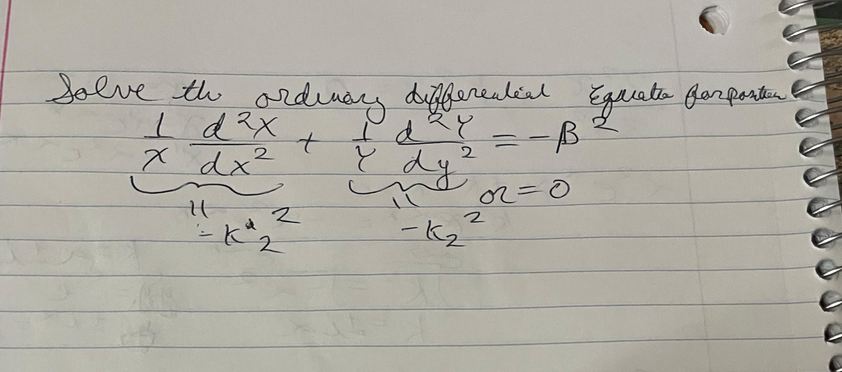 Solve th ordinary differential Equatio for position
1/X d²X/dx² + 1/Y d²Y/dy² = -β²
or = 0
= -K₂² -K₂²